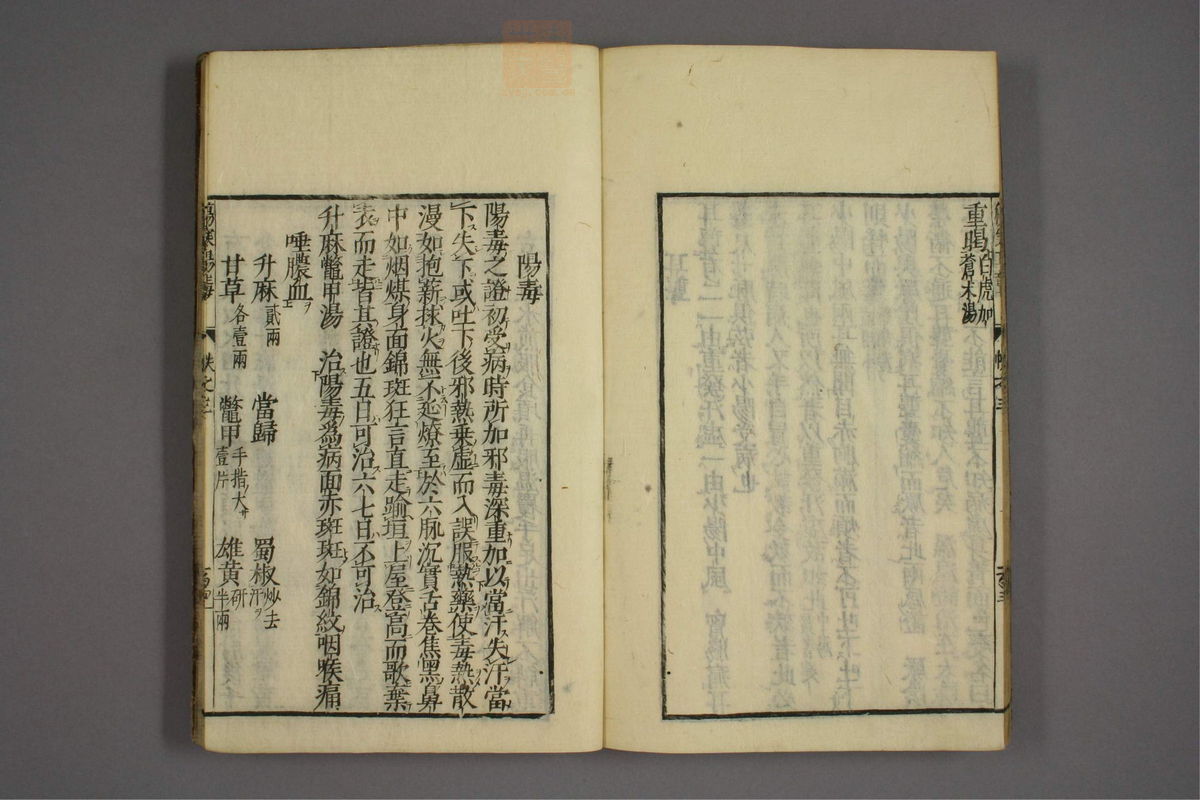 重暍白虎加
蒼朮湯
陽毒
陽毒之證初受病時所加邪毒深重加以當汗失汗當
下失下或吐下後邪熱乗虚而入誤服熱藥使毒熱散
漫如抱薪救火無不延燎至於六脉沉實舌卷焦黑鼻
中如烟煤身面錦斑狂言直走踰垣上屋登高而歌棄
衣而走皆其證也五日可治六七日不可治
升麻鱉甲湯 治陽毒爲病面赤斑斑如錦紋咽喉痛
唾膿血
升麻貳兩 當歸 蜀椒炒去汗
甘草各壹兩 鱉甲手指大壹片 雄黄研半兩
帙之三